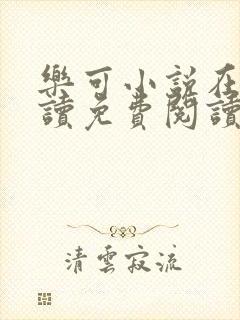 樂可小說在
讀免費閱讀
清雲寂流